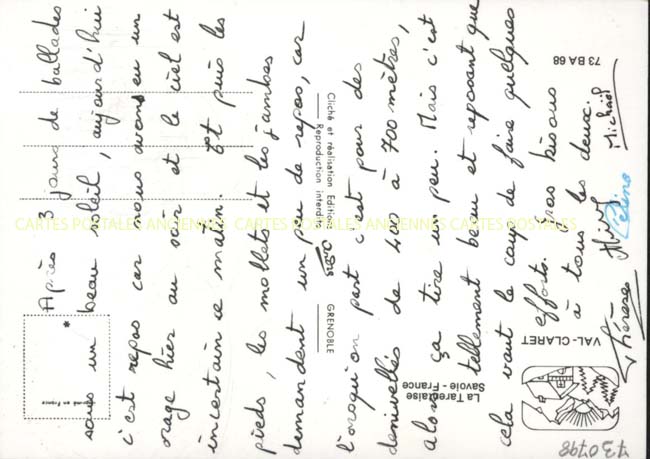 Après 3 jours de ballades
sous un beau soleil, aujourd'hui
c'est repos car nous avons eu un
orage hier au soir et le ciel est
incertain ce matin. Et puis les
pieds, les mollets et les jambes
demandent un peu de repos, car
lorsqu'on part c'est pour des
denivellés de 400 à 700 mètres,
alors ça tire un peu. Mais c'est
tellement beau et reposant que
cela vaut le coup de faire quelques
efforts. Gros bisous
à tous les deux.
Thérèse
Céline
Michaël
*
Imprimé en France
Cliché et réalisation Editions GRENOBLE
Reproduction interdite
La Tarentaise
Savoie - France
VAL-CLARET
73 BA 68
730798
CARTES POSTALES ANCIENNES CARTES POSTALES ANCIENNES CARTES POSTALES